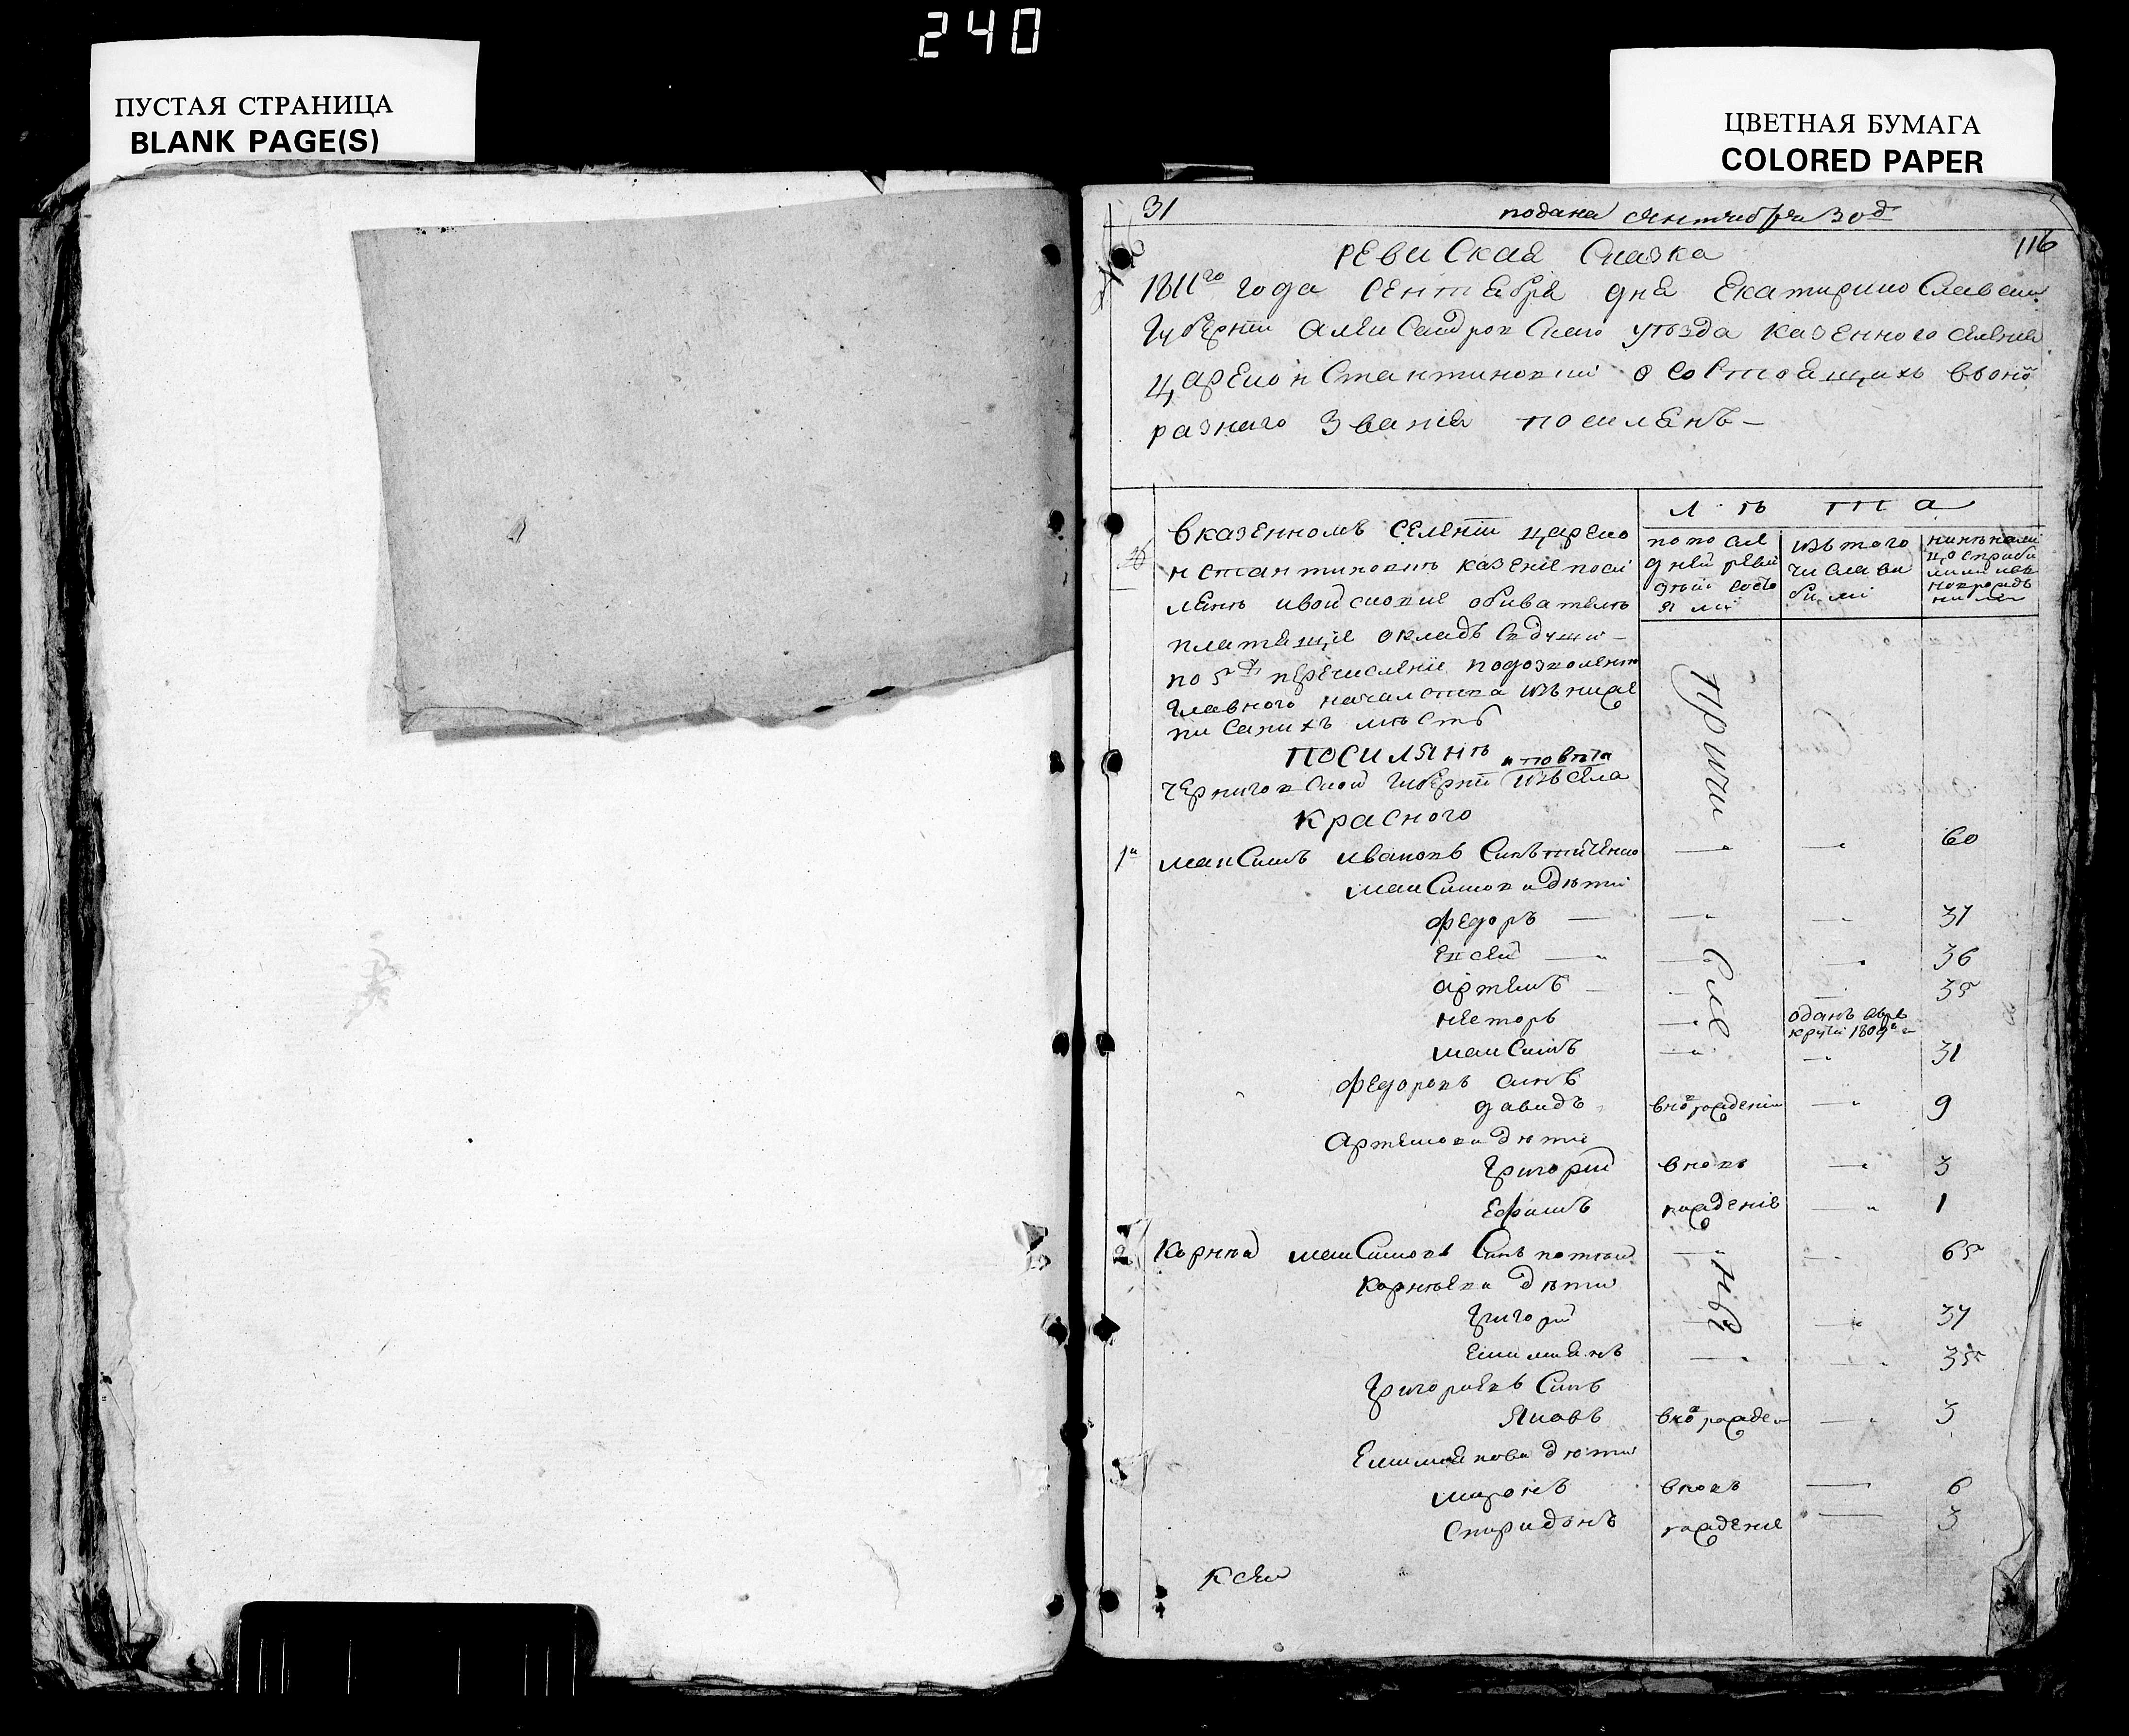 240
ПУСТАЯ СТРАНИЦА
BLANK PAGE(S)
ЦВЕТНАЯ БУМАГА
COLORED PAPER
31
подана сентября 30д
116
РЕВиСкаЯ Скаска
1811го года Сентября дня Екатирино Славскои
Губернии александровского уѣзда казенного селения
Царекон Стантиновки о состоящихъ вьоной
разнаго Звания посилянъ
Л ѣ та
вказенномъ Селении цареко
нстантиновкѣ казение посі
ляне ивойсковие обиватели
платящие окладъ съдуши
по 5й перечислении подозволению
главного началства изъниже
писаних мѣстъ
попосле
дней реви
зии состо
яли
изътого
числа ви
били
нинѣ налі
цо
посилянѣ
иповѣта
черниговской губернии изъсела
Красного
причи
сле
ни
1й
максимъ ивановъ Синъ
60
максимови дѣти
федоръ
37
Евсей
36
артемъ
35
несторъ
оданъ
1809
максимъ
31
федоровъ синъ
давидъ
вновъ рождении
9
артемови дѣти
григорий
вновь
3
Ефимъ
рождение
1
2
Корнѣй максимовъ Синъ
65
Корнѣеви дѣти
григорий
37
Емилиянъ
35
григориевъ Синъ
Яковъ
вновъ рожден
3
Емилиянови дѣти
миронъ
вновь
6
Спиридонъ
рождение
3
К сей